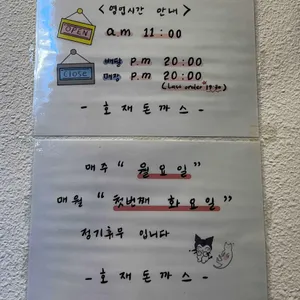 < 영업시간 안내 >
OPEN
a.m 11:00
배달 p.m 20:00
Close
매장 p.m 20:00
(Last order 19:30)
- 호재돈까스 -
매주 " 월요일 "
매월 " 첫번째 화요일 "
정기휴무 입니다
- 호재돈까스 -